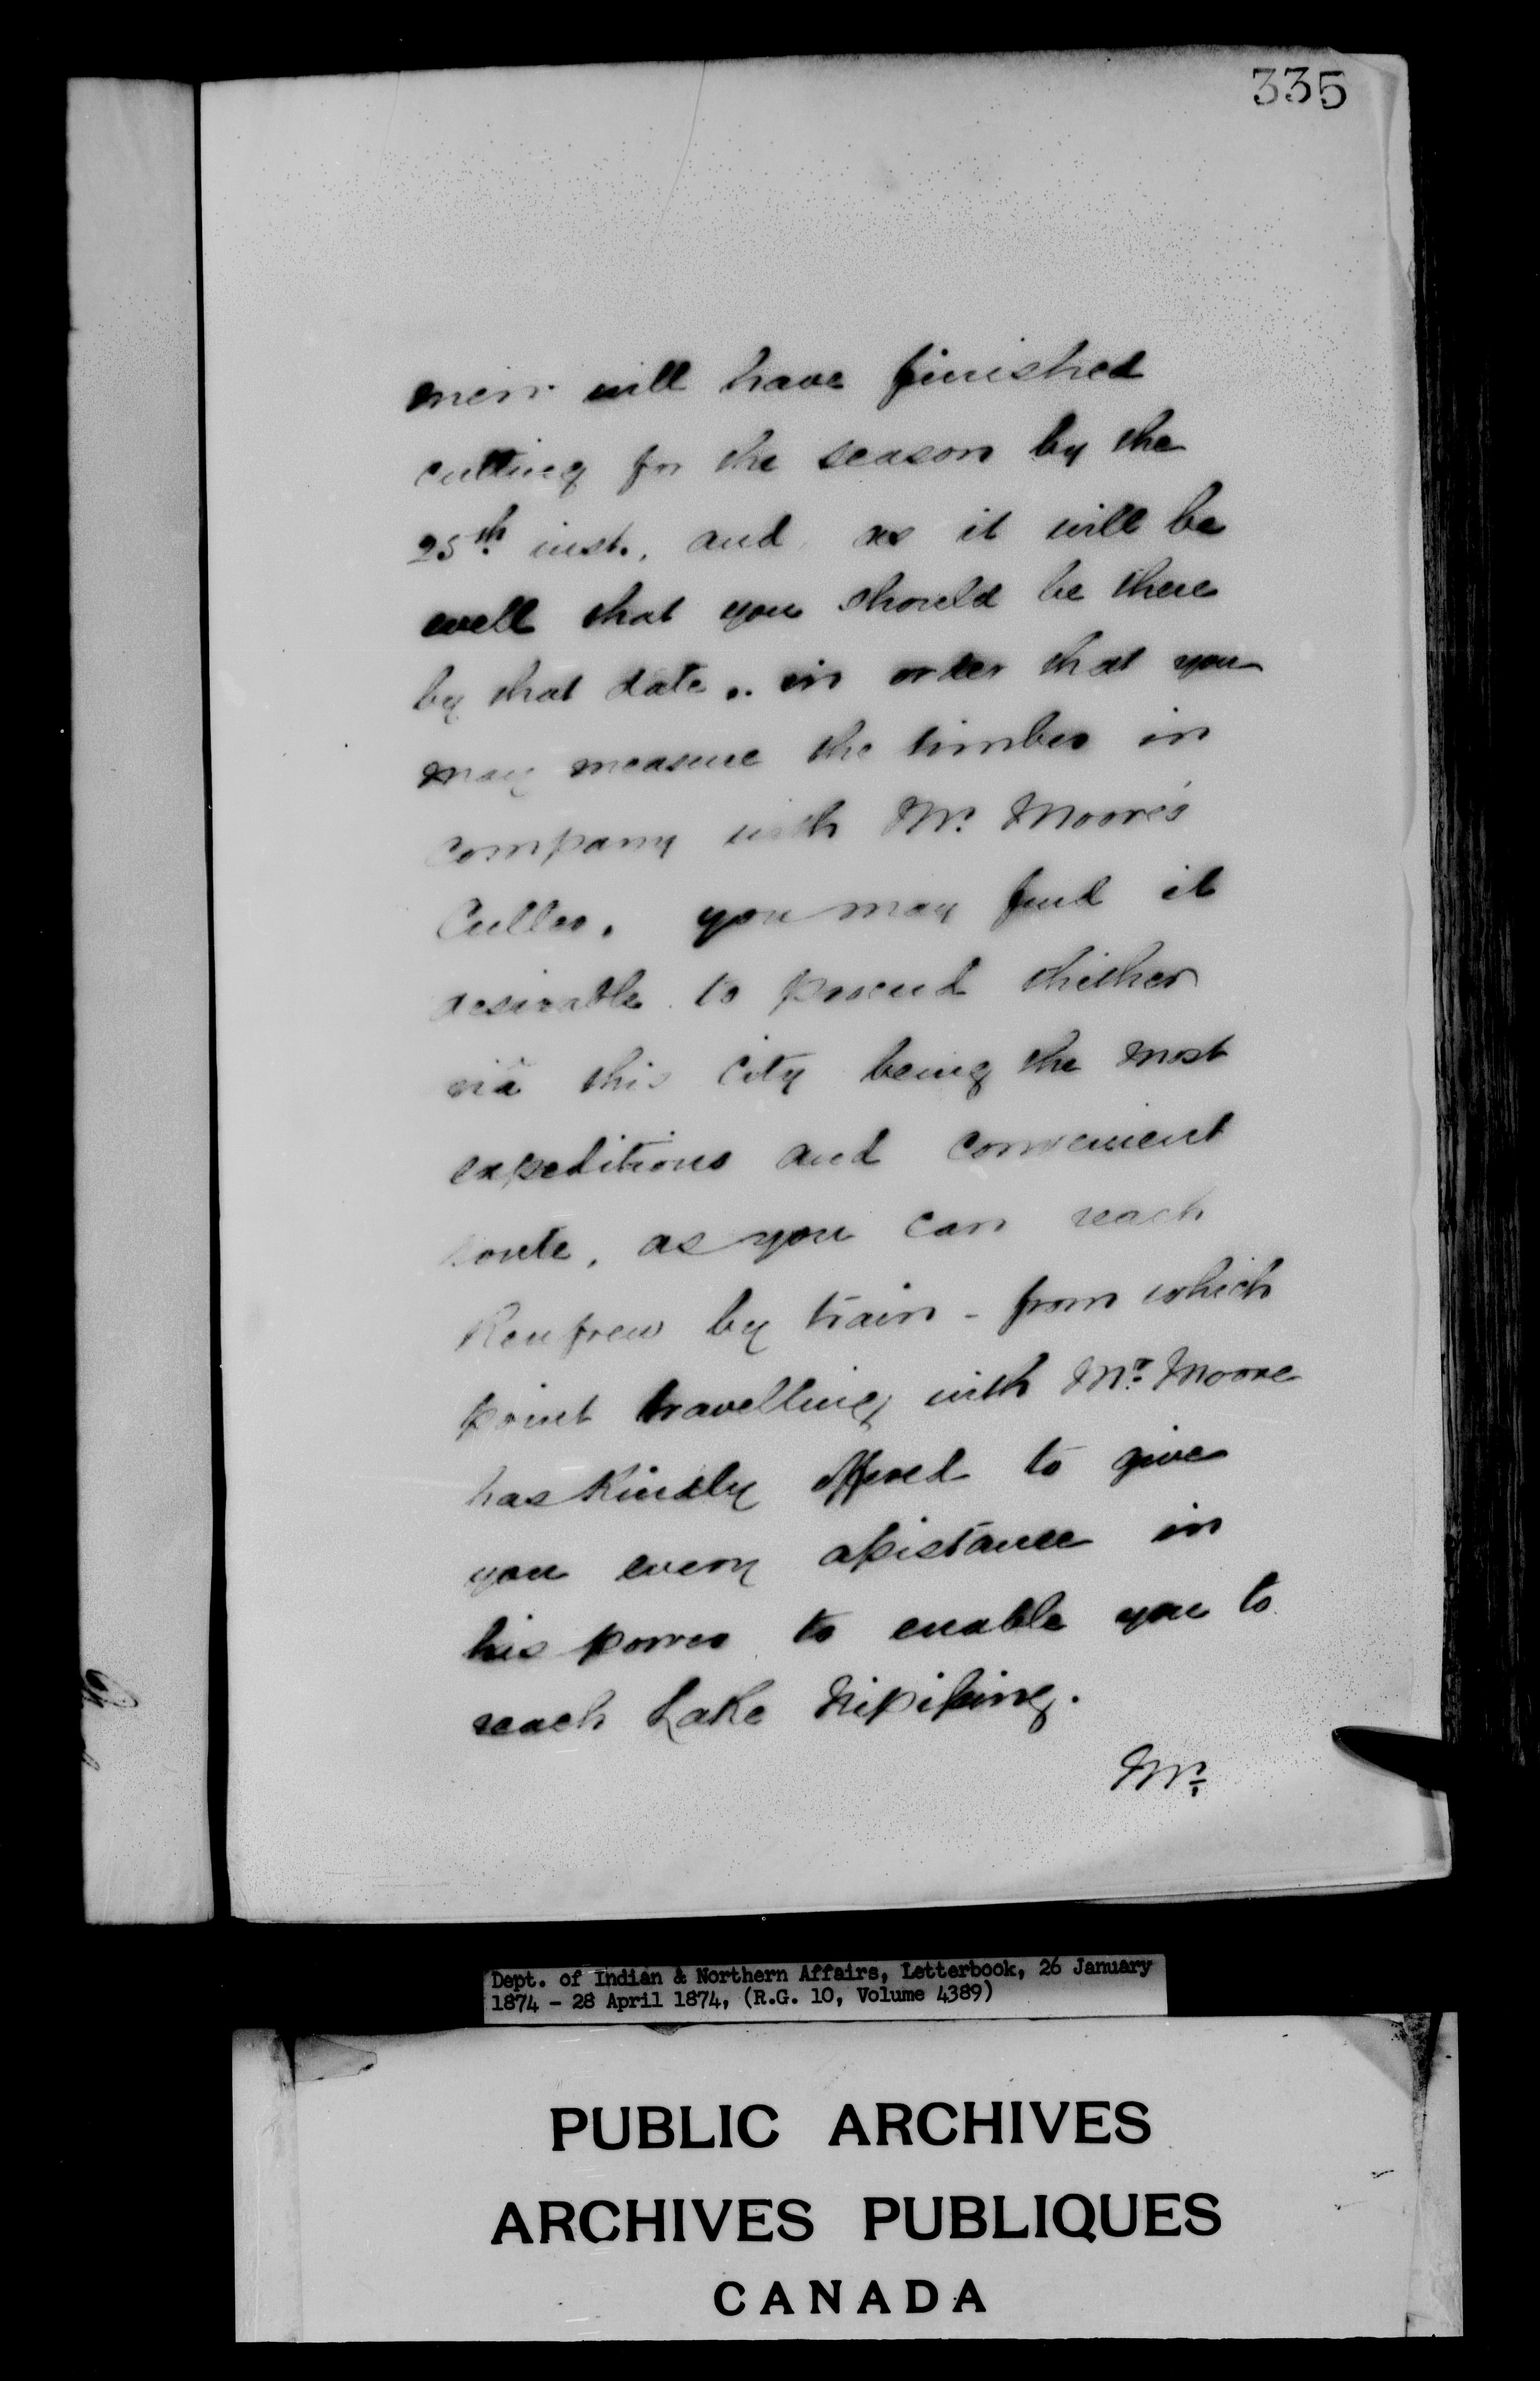 335
men will have finished
cutting for the season by the
25th inst., and as it will be
well that you should be there
by that date, in order that you
may measure the timber in
company with Mr. Moore's
Culler. you may find it
desirable to proceed thither
via this City being the most
expeditious and convenient
route, as you can reach
Renfrew by train - from which
point travelling with Mr. Moore
has Kindly offered to give
you every assistance in
his power to enable you to
reach Lake Nipissing.
Mr.
Dept. of Indian & Northern Affairs, Letterbook, 26 January
1874 - 28 April 1874, (R.G. 10, Volume 4389)
PUBLIC ARCHIVES
ARCHIVES PUBLIQUES
CANADA